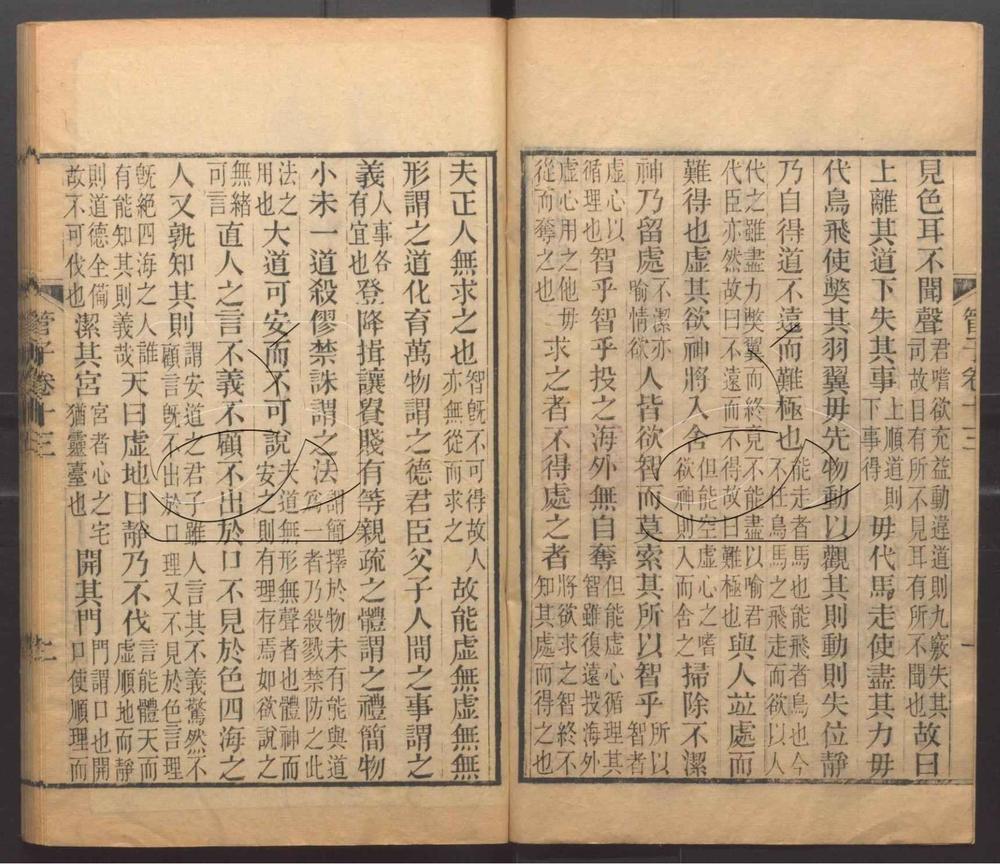 見色耳不聞聲君嗜欲充益動違道則九竅失其司故目有所不見耳有所不聞也故曰
上離其道下失其事上順道則下事得毋代馬走使盡其力毋
代鳥飛使獘其羽翼毋先物動以觀其則動則失位靜
乃自得道不遠而難極也能走者馬也能飛者鳥也今不任鳥馬之飛走而欲以人
代之雖盡力獘翼而終竟不能盡以喻君代臣亦然故曰不遠而不得故曰難極也與人竝處而
難得也虛其欲神將入舍但能空虛心之嗜欲神則入而舍之掃除不潔
神乃留處不潔亦喻情欲人皆欲智而莫索其所以智乎智者所以
虛心以循理也智乎智乎投之海外無自奪但能虛心循理其智雖復遠投海外
虛心用之他毋從而奪之也求之者不得處之者將欲求之智終不知其處而得之也
夫正人無求之也智旣不可得故人亦無從而求之故能虛無虛無無
形謂之道化育萬物謂之德君臣父子人間之事謂之
義人事各有宜也登降揖讓貴賤有等親疏之體謂之禮簡物
小未一道殺僇禁誅謂之法謂簡擇於物未有能與道爲一者乃殺戮禁防之此
法之用也大道可安而不可說夫道無形無聲者也體神而安之則有理存焉如欲說之
無緒可言直人之言不義不顧不出於口不見於色四海之
人又孰知其則謂安道之君子雖人言其不義驚然不顧言旣不出於口理又不見於色言理
旣絶四海之人誰有能知其則義哉天曰虛地曰靜乃不伐言能體天而虛順地而靜
則道德全備故不可伐也潔其宮宮者心之宅猶靈臺也開其門門謂口也開口使順理而
管子卷十三